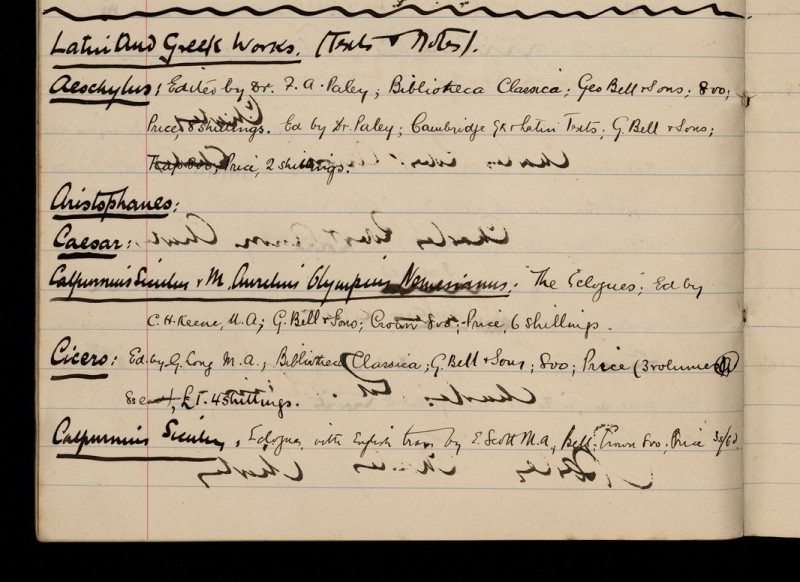 Latin And Greek Works. (Texts & Notes).
Aeschylus; Edited by Dr. F. A. Paley; Bibliotheca Classica; Geo Bell & Sons; 8vo;
Price, 8 shillings. Ed by Dr. Paley; Cambridge Gk & Latin Texts; G. Bell & Sons;
Price, 2 shillings.
Aristophanes:
Caesar:
Calpurnius Siculus & M. Aurelius Olympius Nemesianus: The Eclogues; Ed by
C. H. Keene, M.A; G. Bell & Sons; Crown 8vo; Price, 6 shillings.
Cicero: Ed. by G. Long M.A.; Bibliotheca Classica; G. Bell & Sons; 8vo; Price (3 volumes
£1. 4 shillings.
Calpurnius Siculus, Eclogues, with English trans by E. Scott M.A, Bell; Crown 8vo; Price 3s/6d.